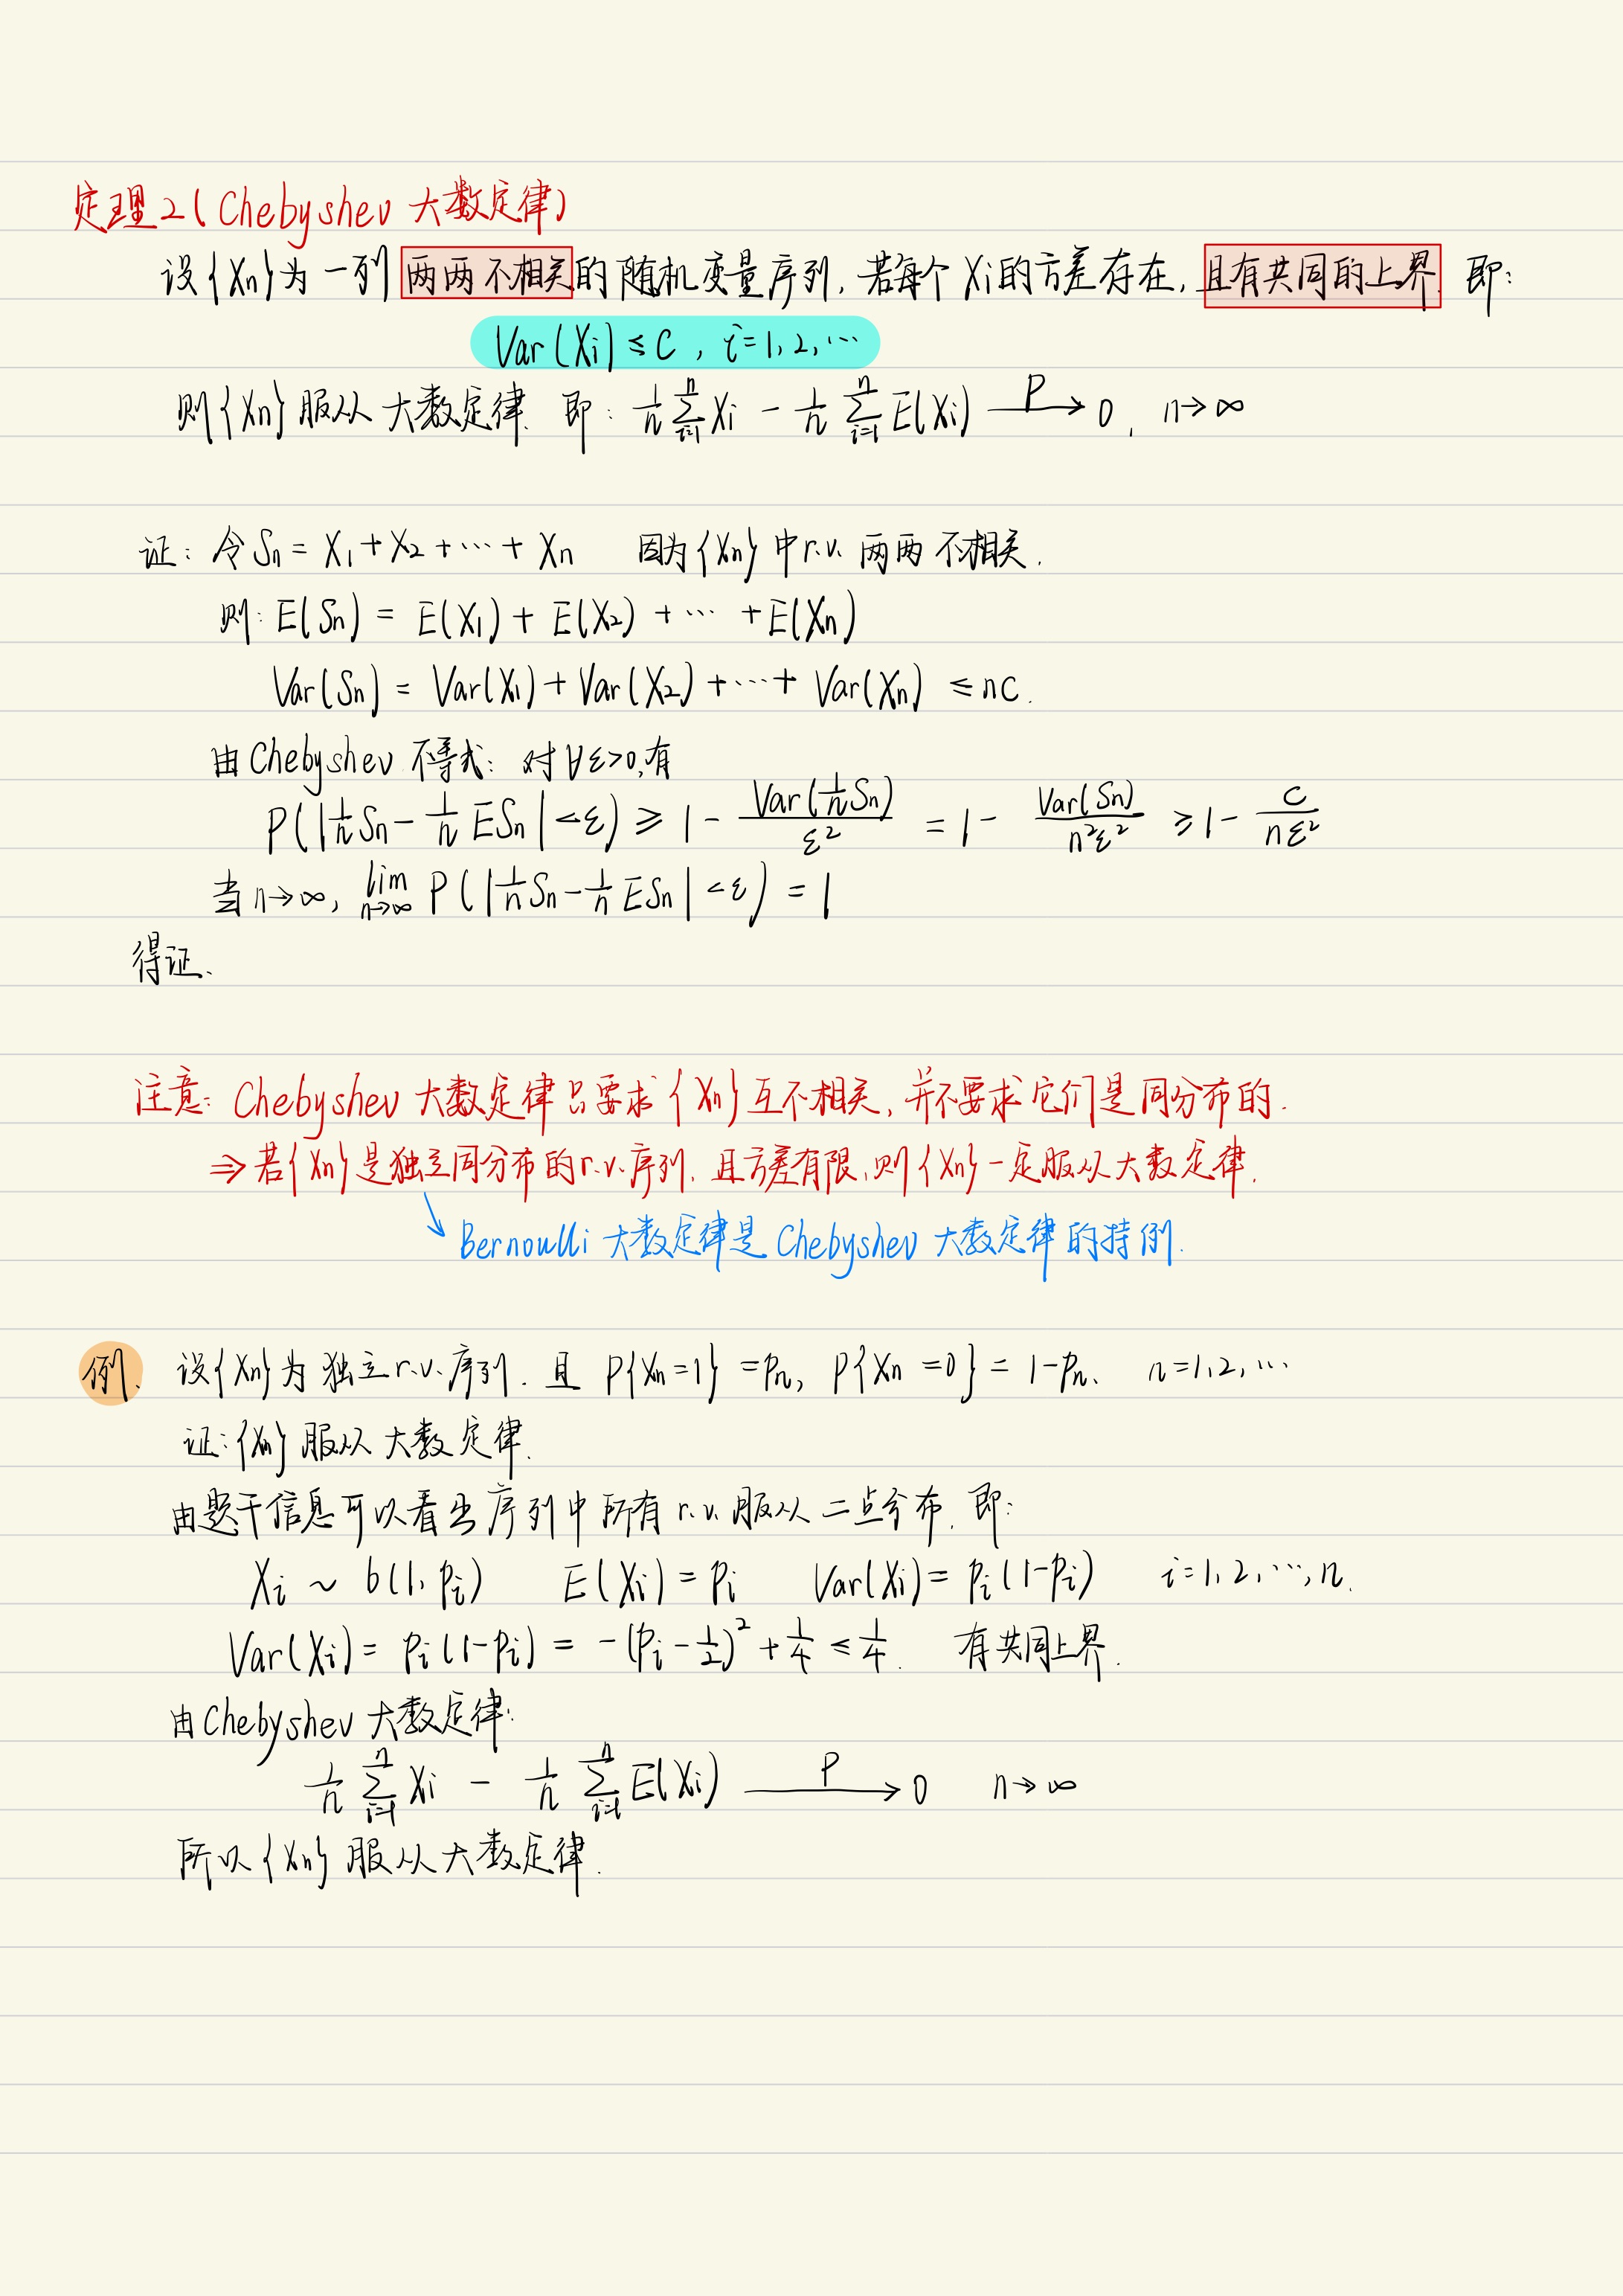 定理2(Chebyshev 大数定律)
设{Xn}为一列两两不相关的随机变量序列,若每个Xi的方差存在,且有共同的上界.即:
Var(Xi)≤c,i=1,2,…
则{Xn}服从大数定律.即:1/n ∑_{i=1}^{n} Xi - 1/n ∑_{i=1}^{n} E(Xi) —P→ 0, n→∞
证:令Sn=X1+X2+…+Xn 因为{Xn}中r.v.两两不相关.
则:E(Sn)=E(X1)+E(X2)+…+E(Xn)
Var(Sn)=Var(X1)+Var(X2)+…+Var(Xn)≤nc.
由Chebyshev不等式:对∀ε>0,有
P(|1/n Sn - 1/n ESn|<ε)≥1-Var(1/n Sn)/ε²=1-Var(Sn)/n²ε²≥1-c/nε²
当n→∞,lim_{n→∞} P(|1/n Sn - 1/n ESn|<ε)=1
得证.
注意:Chebyshev 大数定律只要求{Xn}互不相关,并不要求它们是同分布的.
⇒若{Xn}是独立同分布的r.v.序列,且方差有限,则{Xn}一定服从大数定律.
Bernoulli 大数定律是 Chebyshev 大数定律的特例.
例. 设{Xn}为独立r.v.序列.且 P{Xn=1}=pn, P{Xn=0}=1-pn. n=1,2,…
证:{Xn}服从大数定律.
由题干信息可以看出序列中所有r.v.服从二点分布.即:
Xi~b(1,pi) E(Xi)=pi Var(Xi)=pi(1-pi) i=1,2,…,n.
Var(Xi)=pi(1-pi)=-(pi-1/2)²+1/4≤1/4. 有共同上界.
由Chebyshev大数定律:
1/n ∑_{i=1}^{n} Xi - 1/n ∑_{i=1}^{n} E(Xi) —P→ 0 n→∞
所以{Xn}服从大数定律.